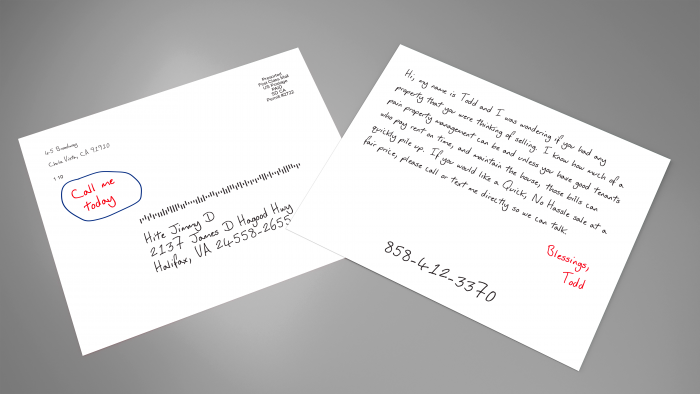 Presorted
First Class Mail
US Postage
PAID
SD CA
Permit #2722
45 Broadway
Chula Vista, CA 91910
1 10
Call me
today
Hite Jimmy D
2137 James D Hagood Hwy
Halifax, VA 24558-2655
Hi, my name is Todd and I was wondering if you had any
property that you were thinking of selling. I know how much of a
pain property management can be and unless you have good tenants
who pay rent on time, and maintain the house, those bills can
quickly pile up. If you would like a Quick, No Hassle sale at a
fair price, please call or text me directly so we can talk.
Blessings,
Todd
858-412-3370